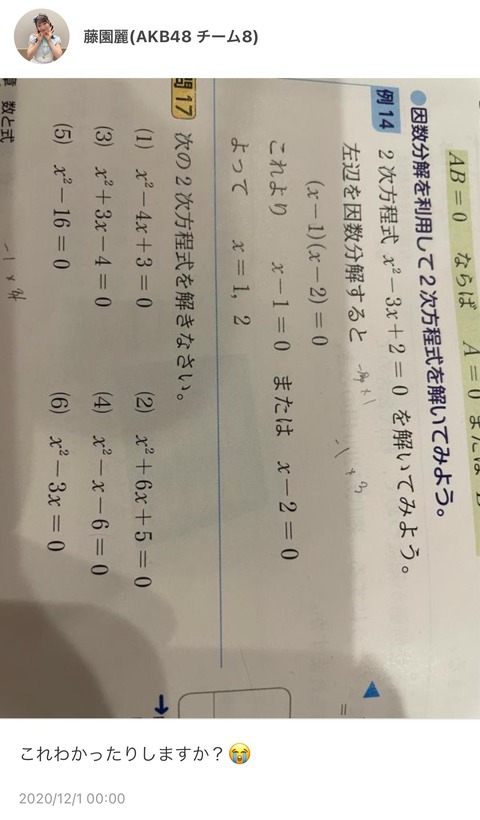 藤園麗(AKB48 チーム8)
AB=0 ならば A=0 または
●因数分解を利用して2次方程式を解いてみよう。
例14 2次方程式 x²−3x+2=0 を解いてみよう。
左辺を因数分解すると
(x−1)(x−2)=0
これより x−1=0 または x−2=0
よって x=1, 2
問17 次の2次方程式を解きなさい。
(1) x²−4x+3=0 (2) x²+6x+5=0
(3) x²+3x−4=0 (4) x²−x−6=0
(5) x²−16=0 (6) x²−3x=0
数と式
これわかったりしますか？😭
2020/12/1 00:00